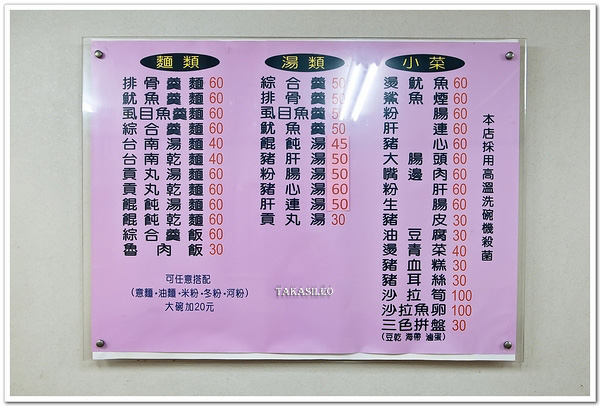 麵類
排骨羹麵60
魷魚羹麵60
虱目魚羹麵60
綜合羹麵60
台南湯麵40
台南乾麵40
貢丸湯麵60
貢丸乾麵60
餛飩湯麵60
餛飩乾麵60
綜合羹飯60
魯肉飯30
可任意搭配
(意麵・油麵・米粉・冬粉・河粉)
大碗加20元
湯類
綜合羹50
排骨羹50
虱目魚羹50
魷魚羹50
餛飩湯45
豬肝湯50
粉腸湯50
豬心湯60
肝連湯50
貢丸湯30
TAKASILEO
小菜
燙魷魚60
鯊魚煙60
粉腸60
肝連60
豬心60
大腸頭60
嘴邊肉60
粉肝60
生腸60
豬皮30
油豆腐30
燙青菜40
豬血糕30
豬耳絲30
沙拉筍100
沙拉魚卵100
三色拼盤30
(豆乾 海帶 滷蛋)
本店採用高溫洗碗機殺菌